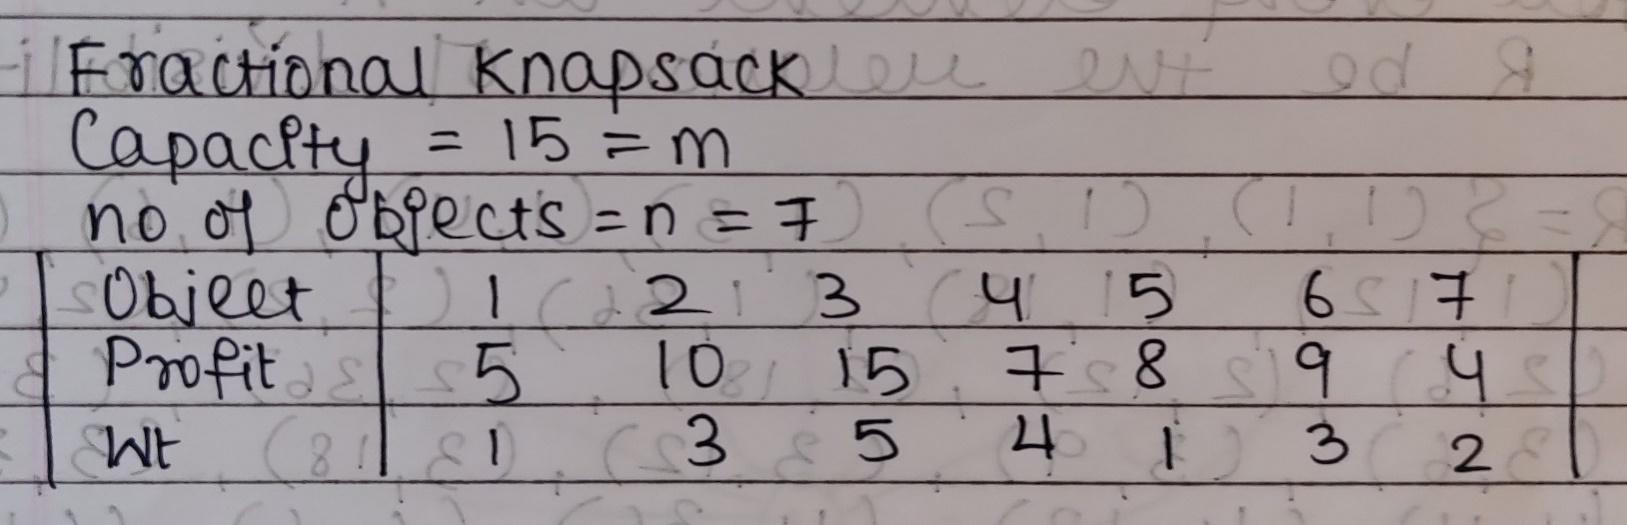 Fractional Knapsack
Capacity = 15 = m
no of Objects = n = 7
Object 1 2 3 4 5 6 7
Profit 5 10 15 7 8 9 4
Wt 1 3 5 4 1 3 2